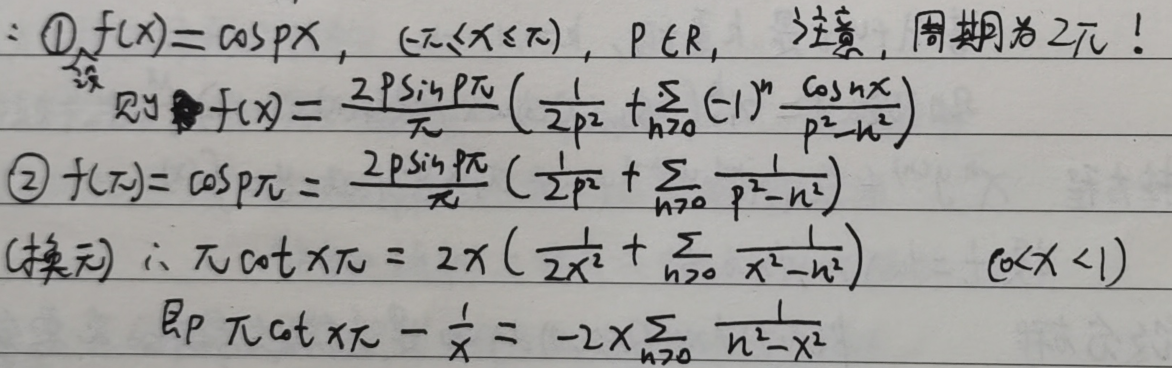 : ①设 f(x) = cospx, (-π≤x≤π), P∈R, 注意, 周期为2π!
则 f(x) = \frac{2psinpπ}{π} ( \frac{1}{2p²} + \sum_{n>0} (-1)ⁿ \frac{cosnx}{p²-n²} )
② f(π) = cospπ = \frac{2psinpπ}{π} ( \frac{1}{2p²} + \sum_{n>0} \frac{1}{p²-n²} )
(换元) ∴ π cot xπ = 2x ( \frac{1}{2x²} + \sum_{n>0} \frac{1}{x²-n²} ) (0<x<1)
即 π cot xπ - \frac{1}{x} = -2x \sum_{n>0} \frac{1}{n²-x²}